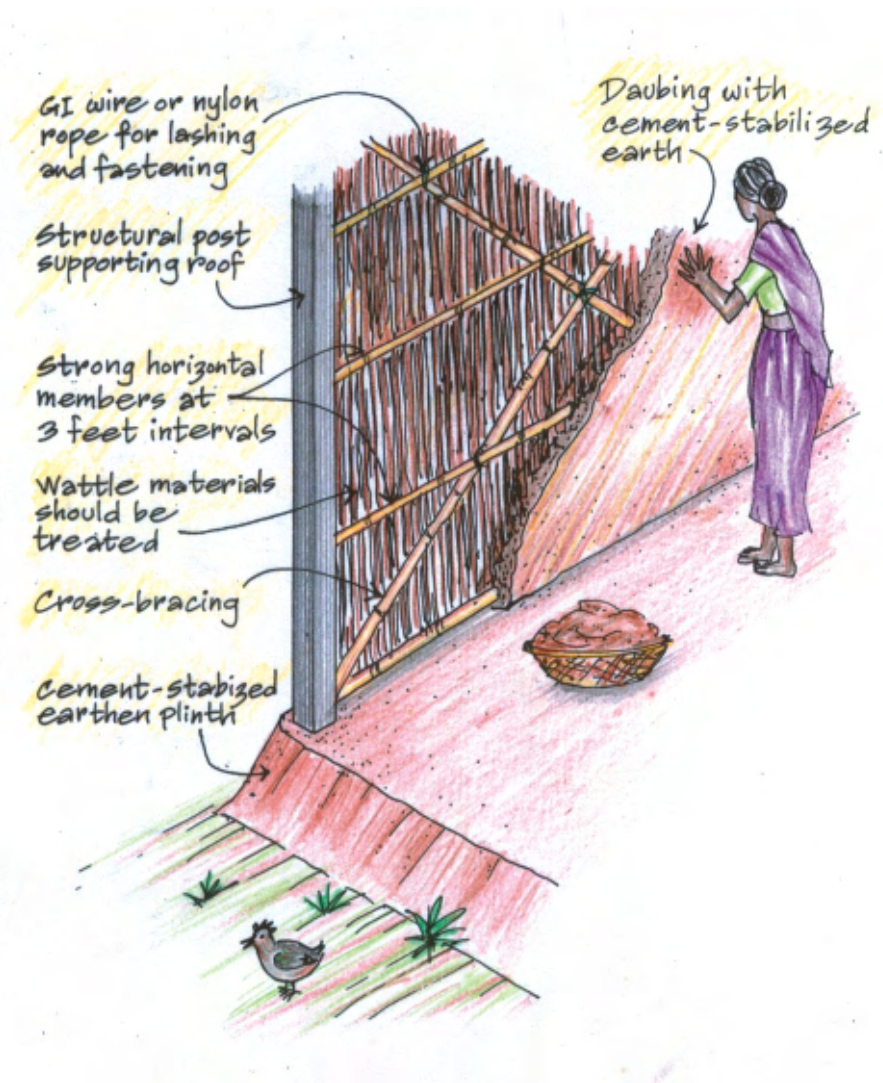 GI wire or nylon
rope for lashing
and fastening
Daubing with
cement-stabilized
earth
Structural post
supporting roof
Strong horizontal
members at
3 feet intervals
Wattle materials
should be
treated
Cross-bracing
Cement-stabized
earthen plinth